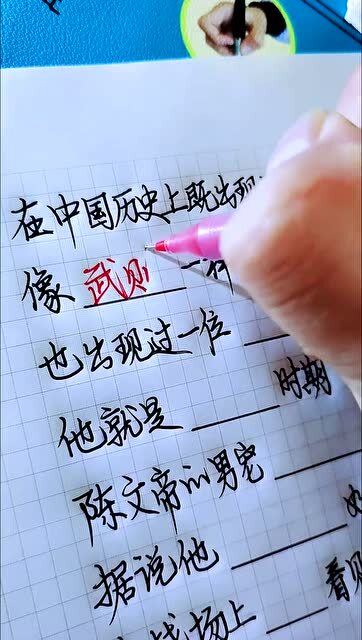 在中国历史上既出现
像武则一样
也出现过一位
他就是 时期
陈文帝的男宠
据说他
战场上 看见